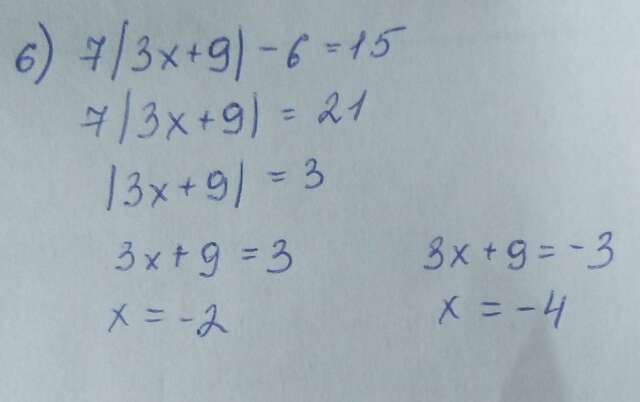 6) 7|3x+9| - 6 = 15
7|3x+9| = 21
|3x+9| = 3
3x+9 = 3 3x+9 = -3
x = -2 x = -4